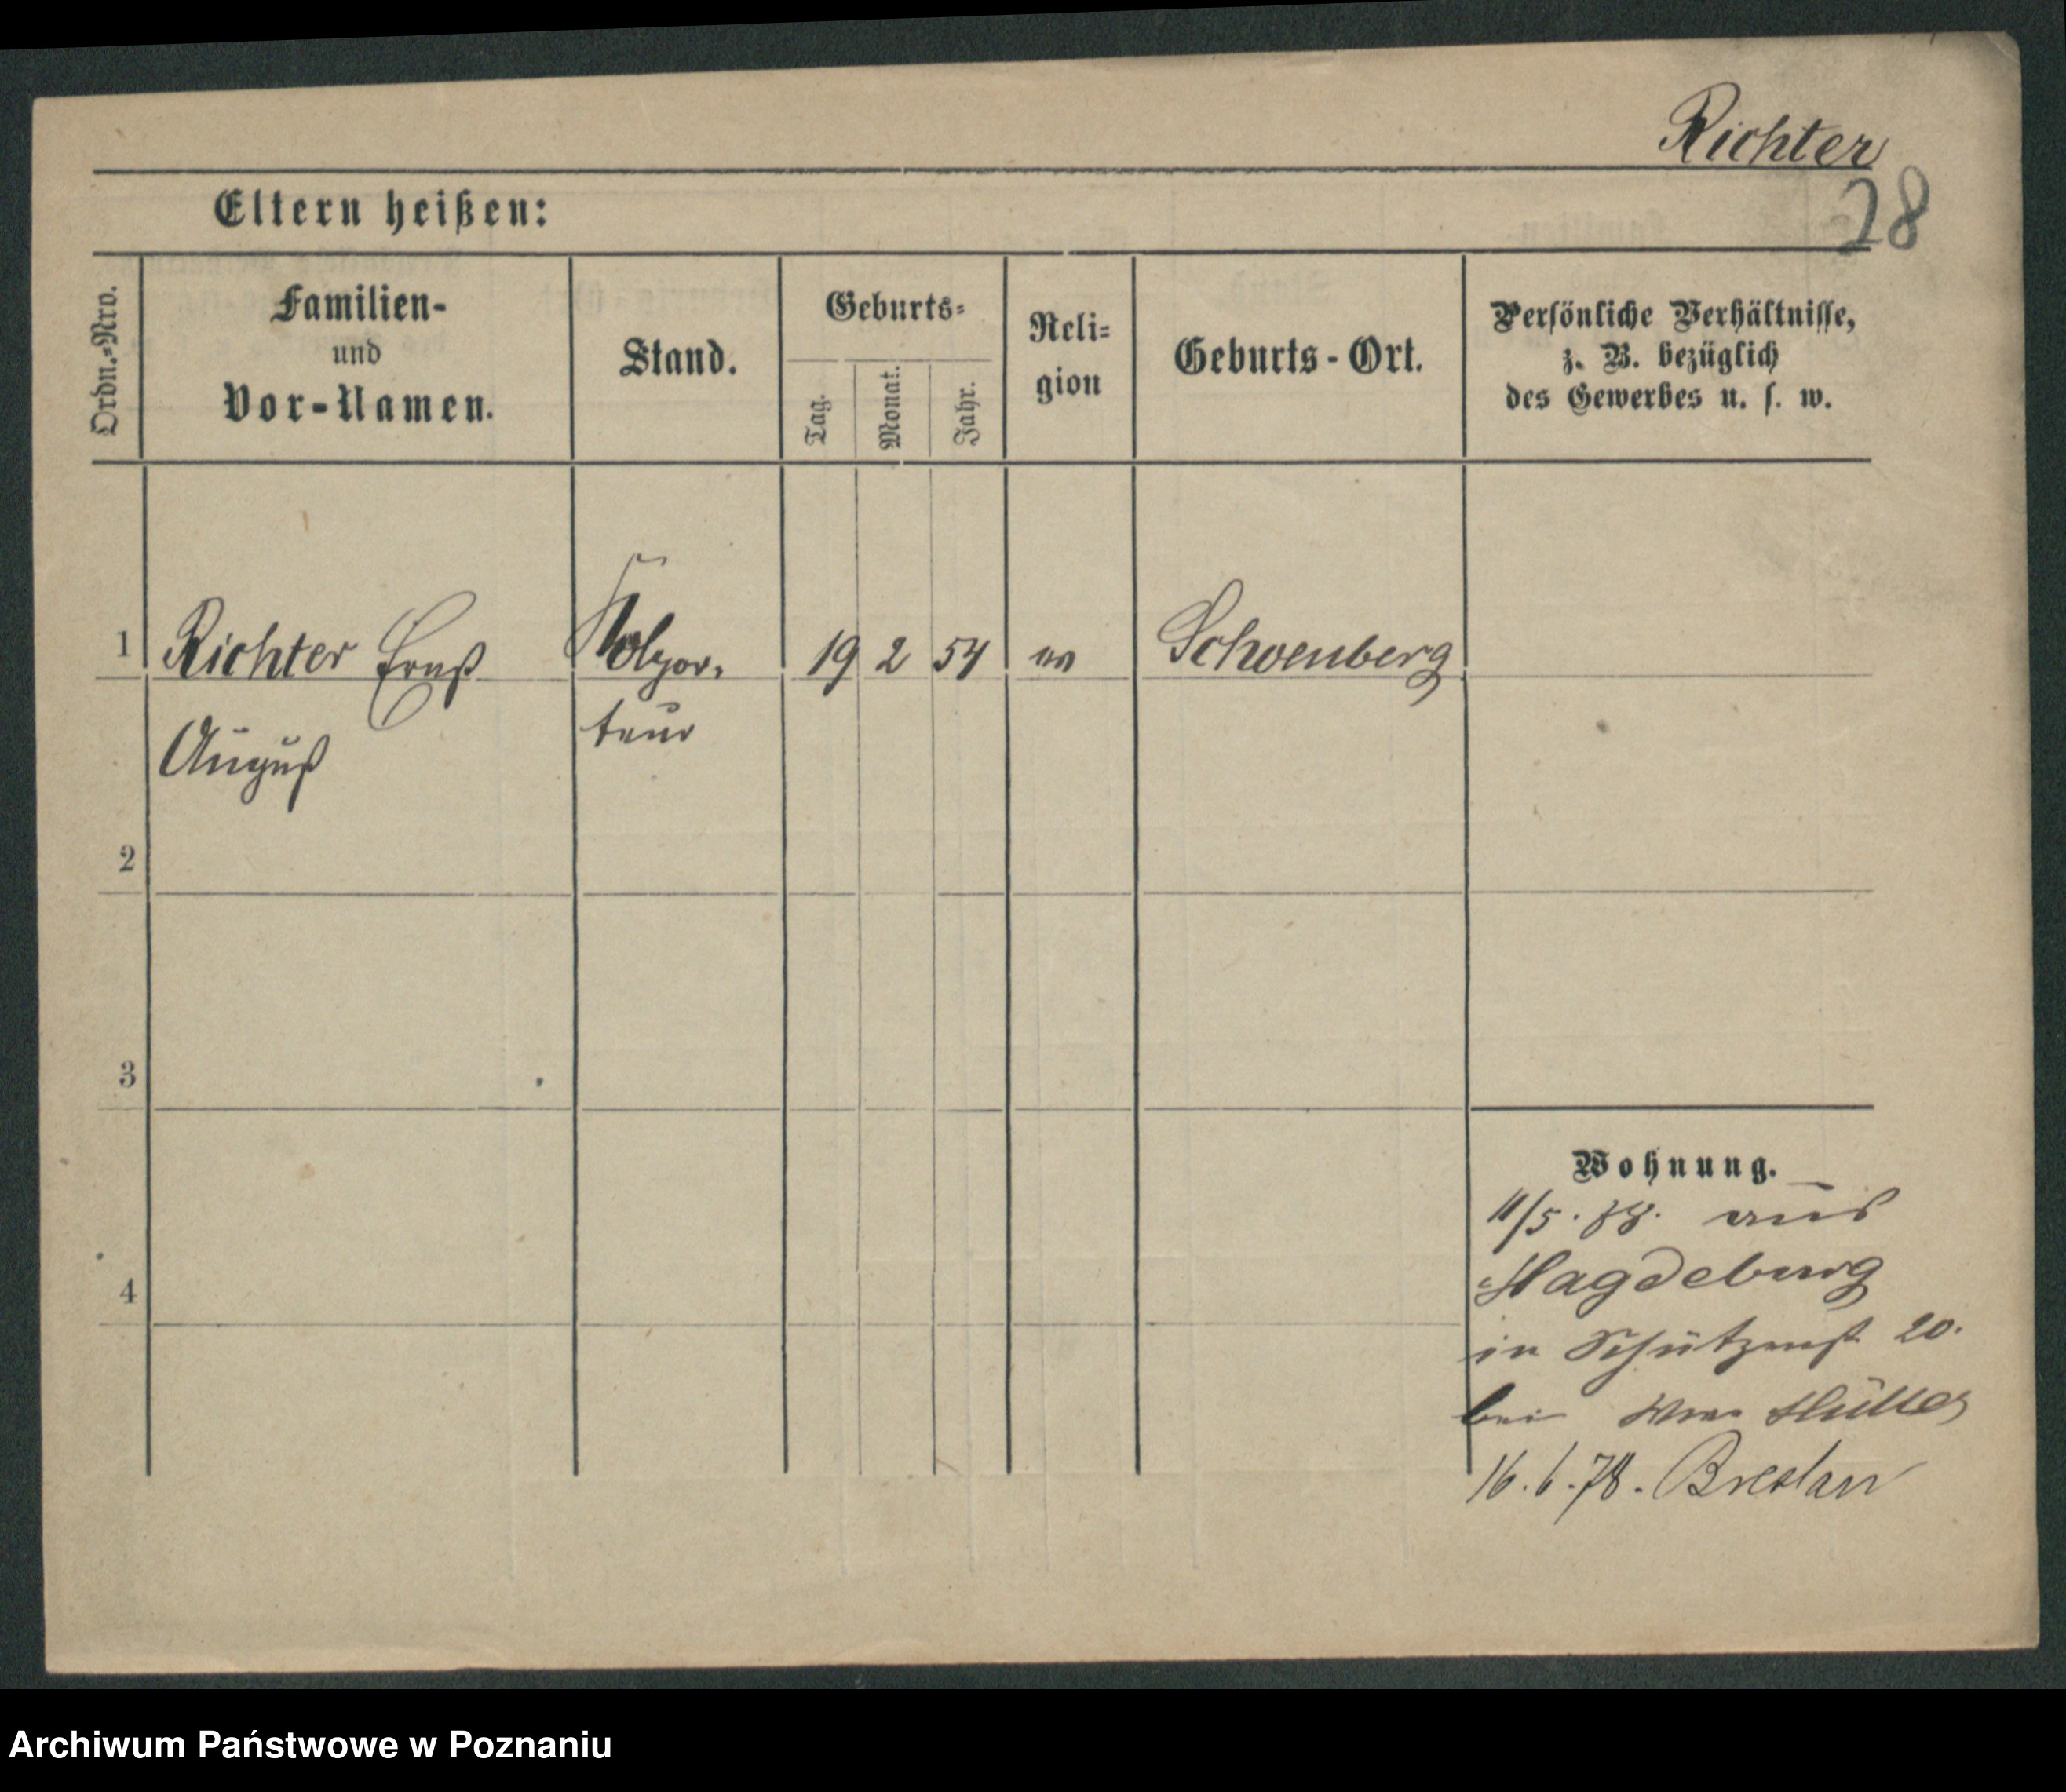 Richter
28
Eltern heißen:
Ordn.-Nro.
Familien-
und
Vor-Namen.
Stand.
Geburts-
Tag.
Monat.
Jahr.
Reli-
gion
Geburts-Ort.
Persönliche Verhältnisse,
z. B. bezüglich
des Gewerbes u. s. w.
1
Richter Ernst
August
Kolpor-
teur
19 2 54
ev
Schoenberg
2
3
4
Wohnung.
11/5. 78. aus
Magdeburg
in Schützenst 20.
bei Müller
16.6.78. Breslau
Archiwum Państwowe w Poznaniu